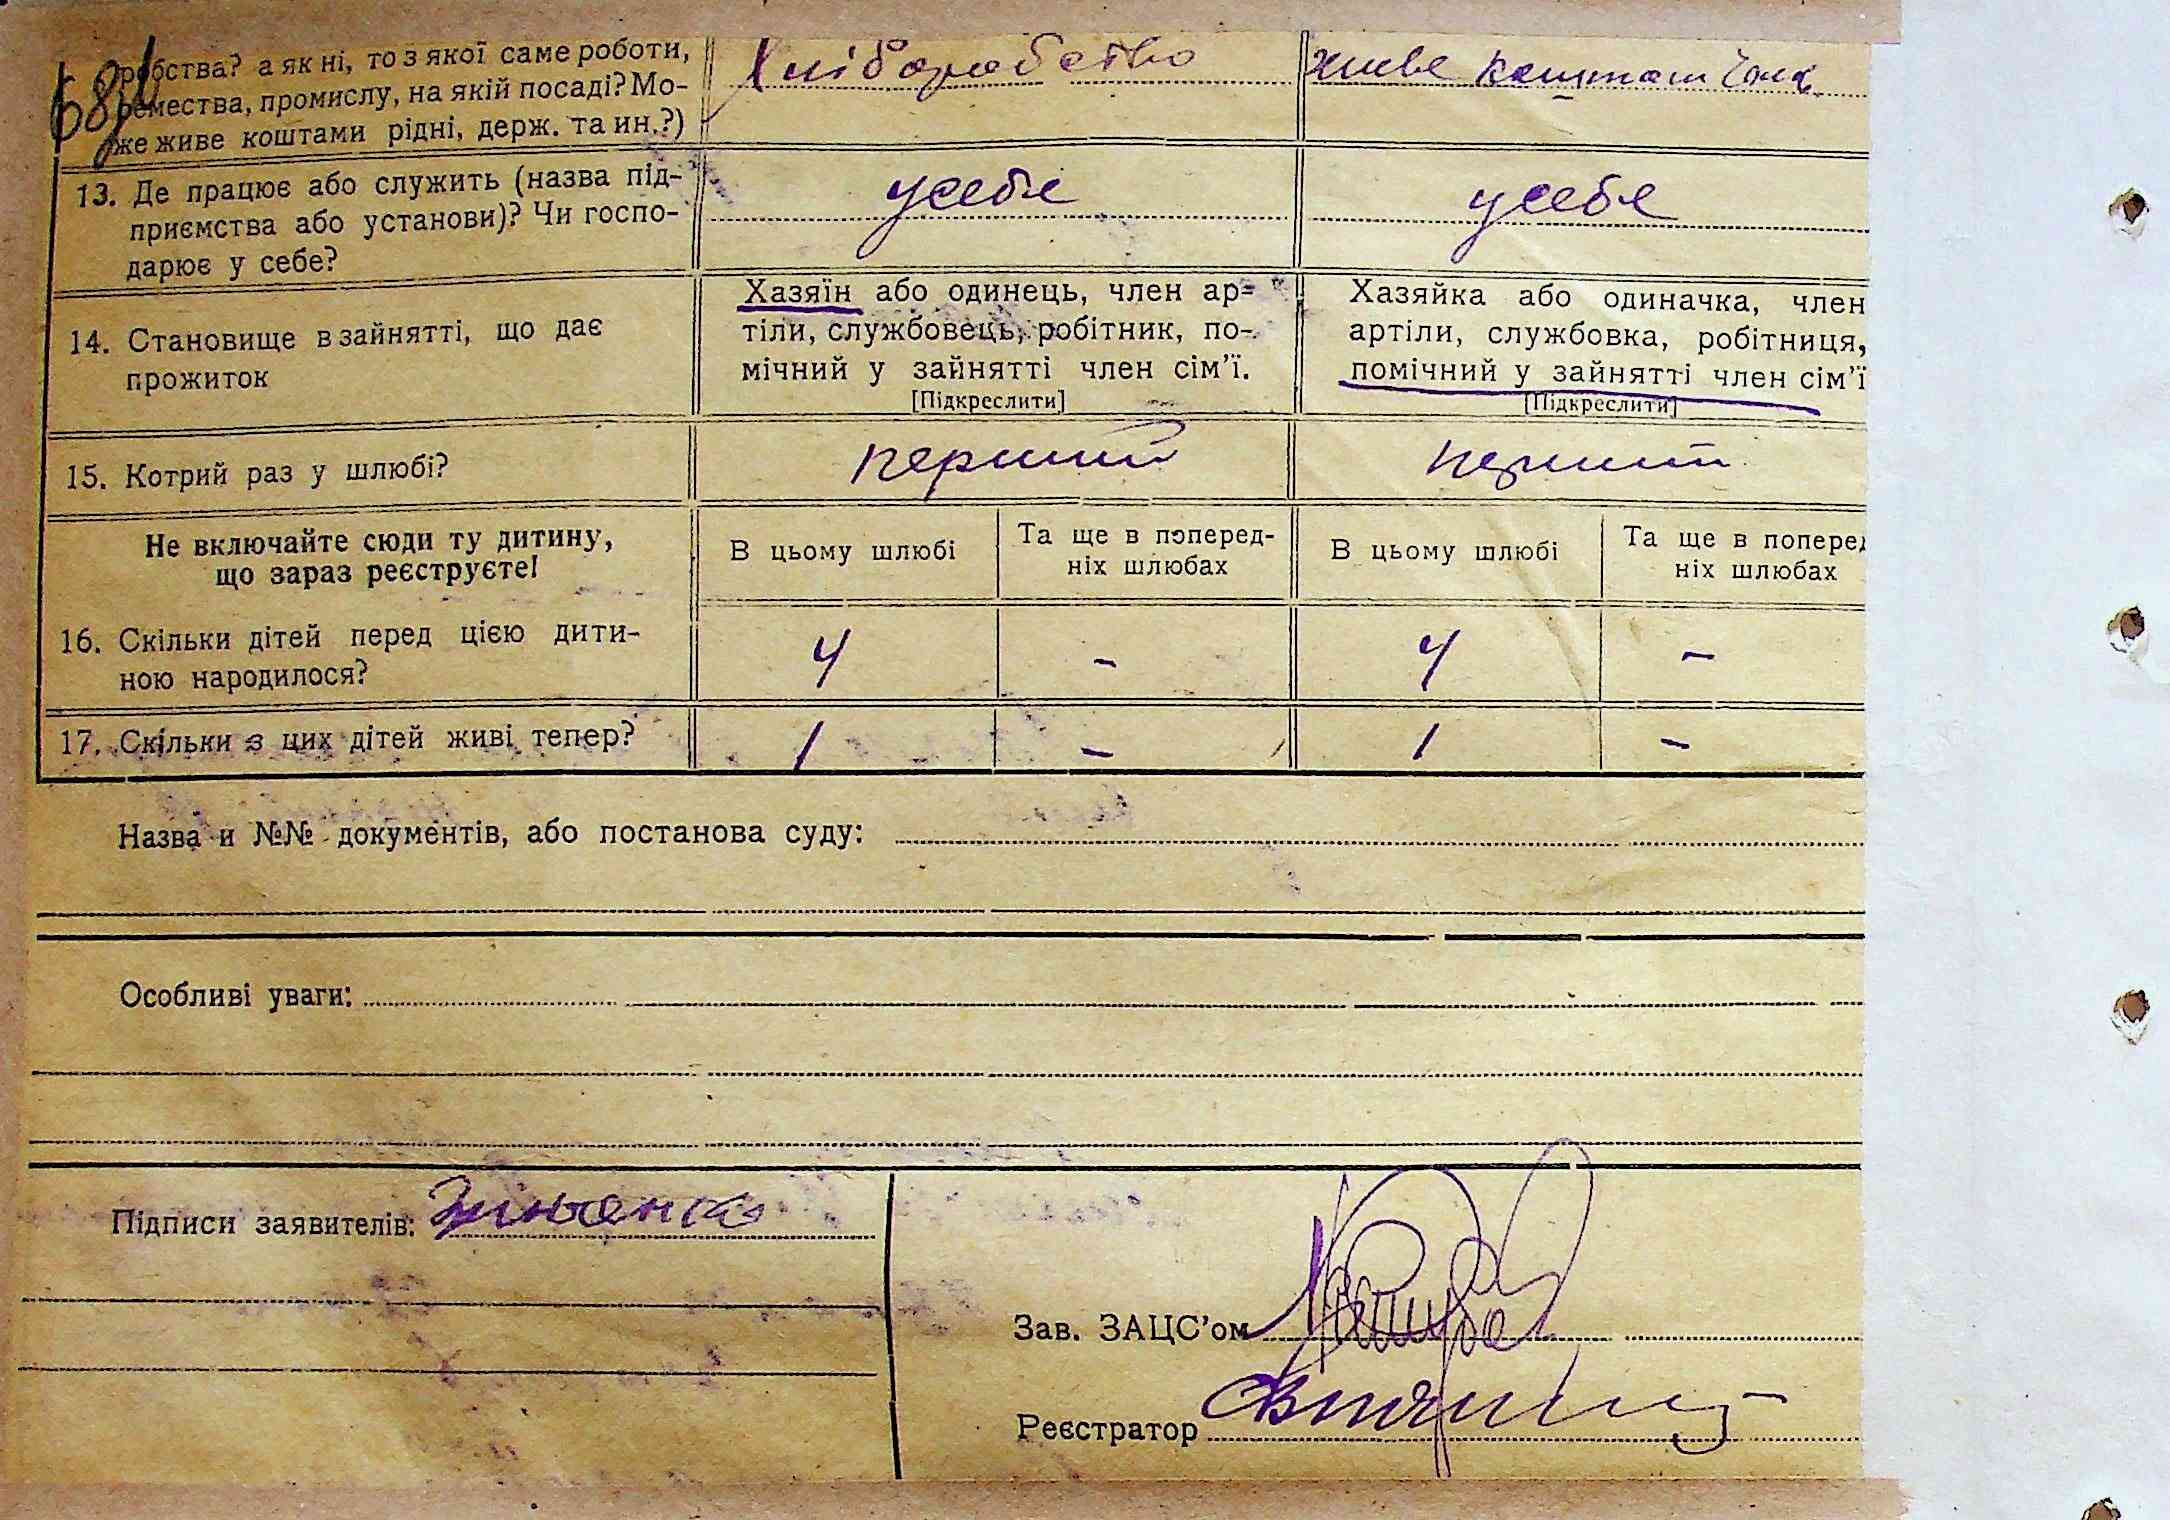 робства? а як ні, то з якої саме роботи,
ремества, промислу, на якій посаді? Мо-
же живе коштами рідні, держ. та ин.?)
Хліборобство
живе коштами чол.
13. Де працює або служить (назва під-
приємства або установи)? Чи госпо-
дарює у себе?
у себе
у себе
14. Становище в зайнятті, що дає
прожиток
Хазяїн або одинець, член ар-
тіли, службовець, робітник, по-
мічний у зайнятті член сім'ї.
[Підкреслити]
Хазяйка або одиначка, член
артіли, службовка, робітниця,
помічний у зайнятті член сім'ї
[Підкреслити]
15. Котрий раз у шлюбі?
перший
перший
Не включайте сюди ту дитину,
що зараз реєструєте!
В цьому шлюбі
Та ще в поперед-
ніх шлюбах
В цьому шлюбі
Та ще в поперед
ніх шлюбах
16. Скільки дітей перед цією дити-
ною народилося?
4
-
4
-
17. Скільки з цих дітей живі тепер?
1
-
1
-
Назва и №№ документів, або постанова суду:
Особливі уваги:
Підписи заявителів:
Зав. ЗАЦС'ом
Реєстратор